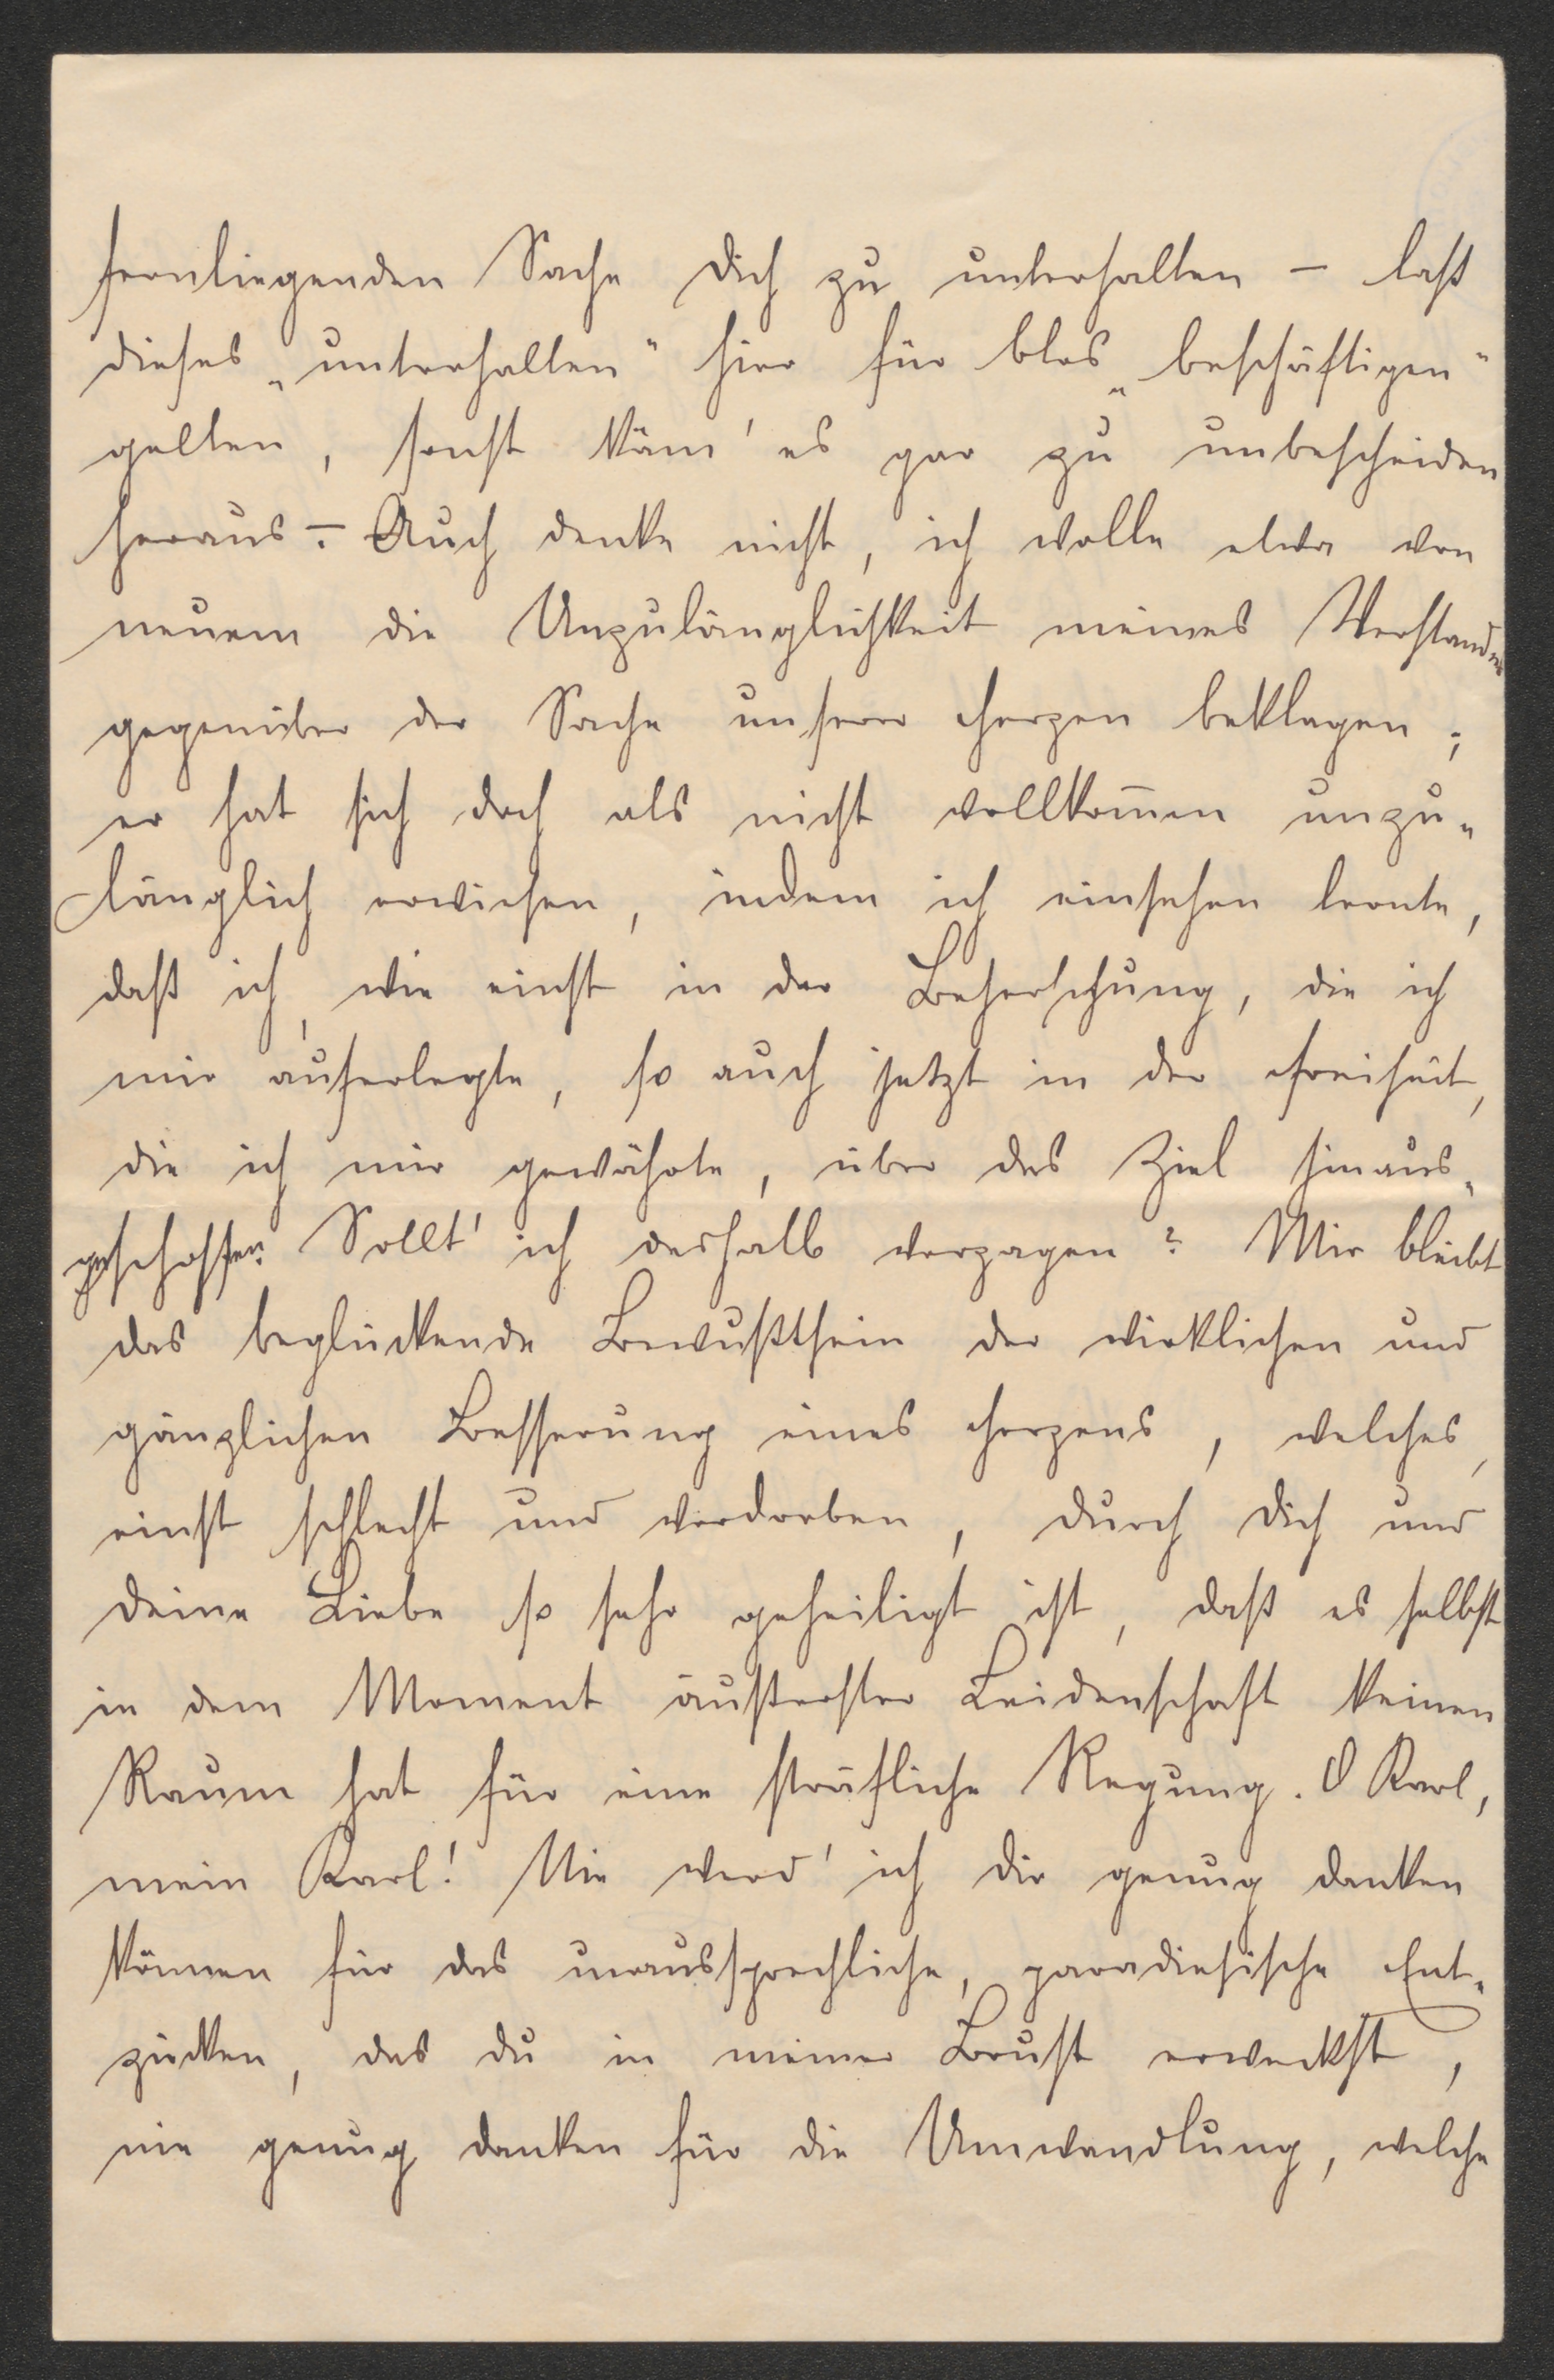 fernliegenden Sache dich zu unterhalten – laß
dieses „unterhalten“ hier für blos „beschäftigen“
gelten, sonst käm' es gar zu unbescheiden
heraus –. Auch denke nicht, ich wolle etwa von
neuem die Unzulänglichkeit meines Verstandes
gegenüber der Sache unserer Herzen beklagen;
er hat sich doch als nicht vollkom̅en unzu„
länglich erwiesen, indem ich einsehen lernte,
daß ich, wie einst in der Beherschung, die ich
mir auferlegte, so auch jetzt in der Freiheit,
die ich mir gewährte, über das Ziel hinaus„
geschossen. Sollt' ich deshalb verzagen? Mir bleibt
das beglückende Bewußtsein der wirklichen und
gänzlichen Besserung eines Herzens, welches,
einst schlecht und verdorben, durch dich und
deine Liebe so sehr geheiligt ist, daß es selbst
in dem Moment äußerster Leidenschaft keinen
Raum hat für eine sträfliche Regung. O Karl,
mein Karl! Nie werd' ich dir genug danken
können für das unaussprechliche, paradiesische Ent„
zücken, das du in meiner Brust erweckst,
nie genug danken für die Umwandlung, welche